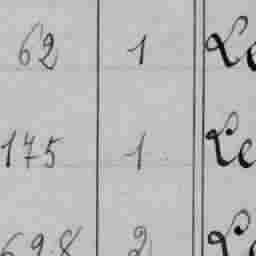 62 1 Le
175 1 Le
698 2 Le